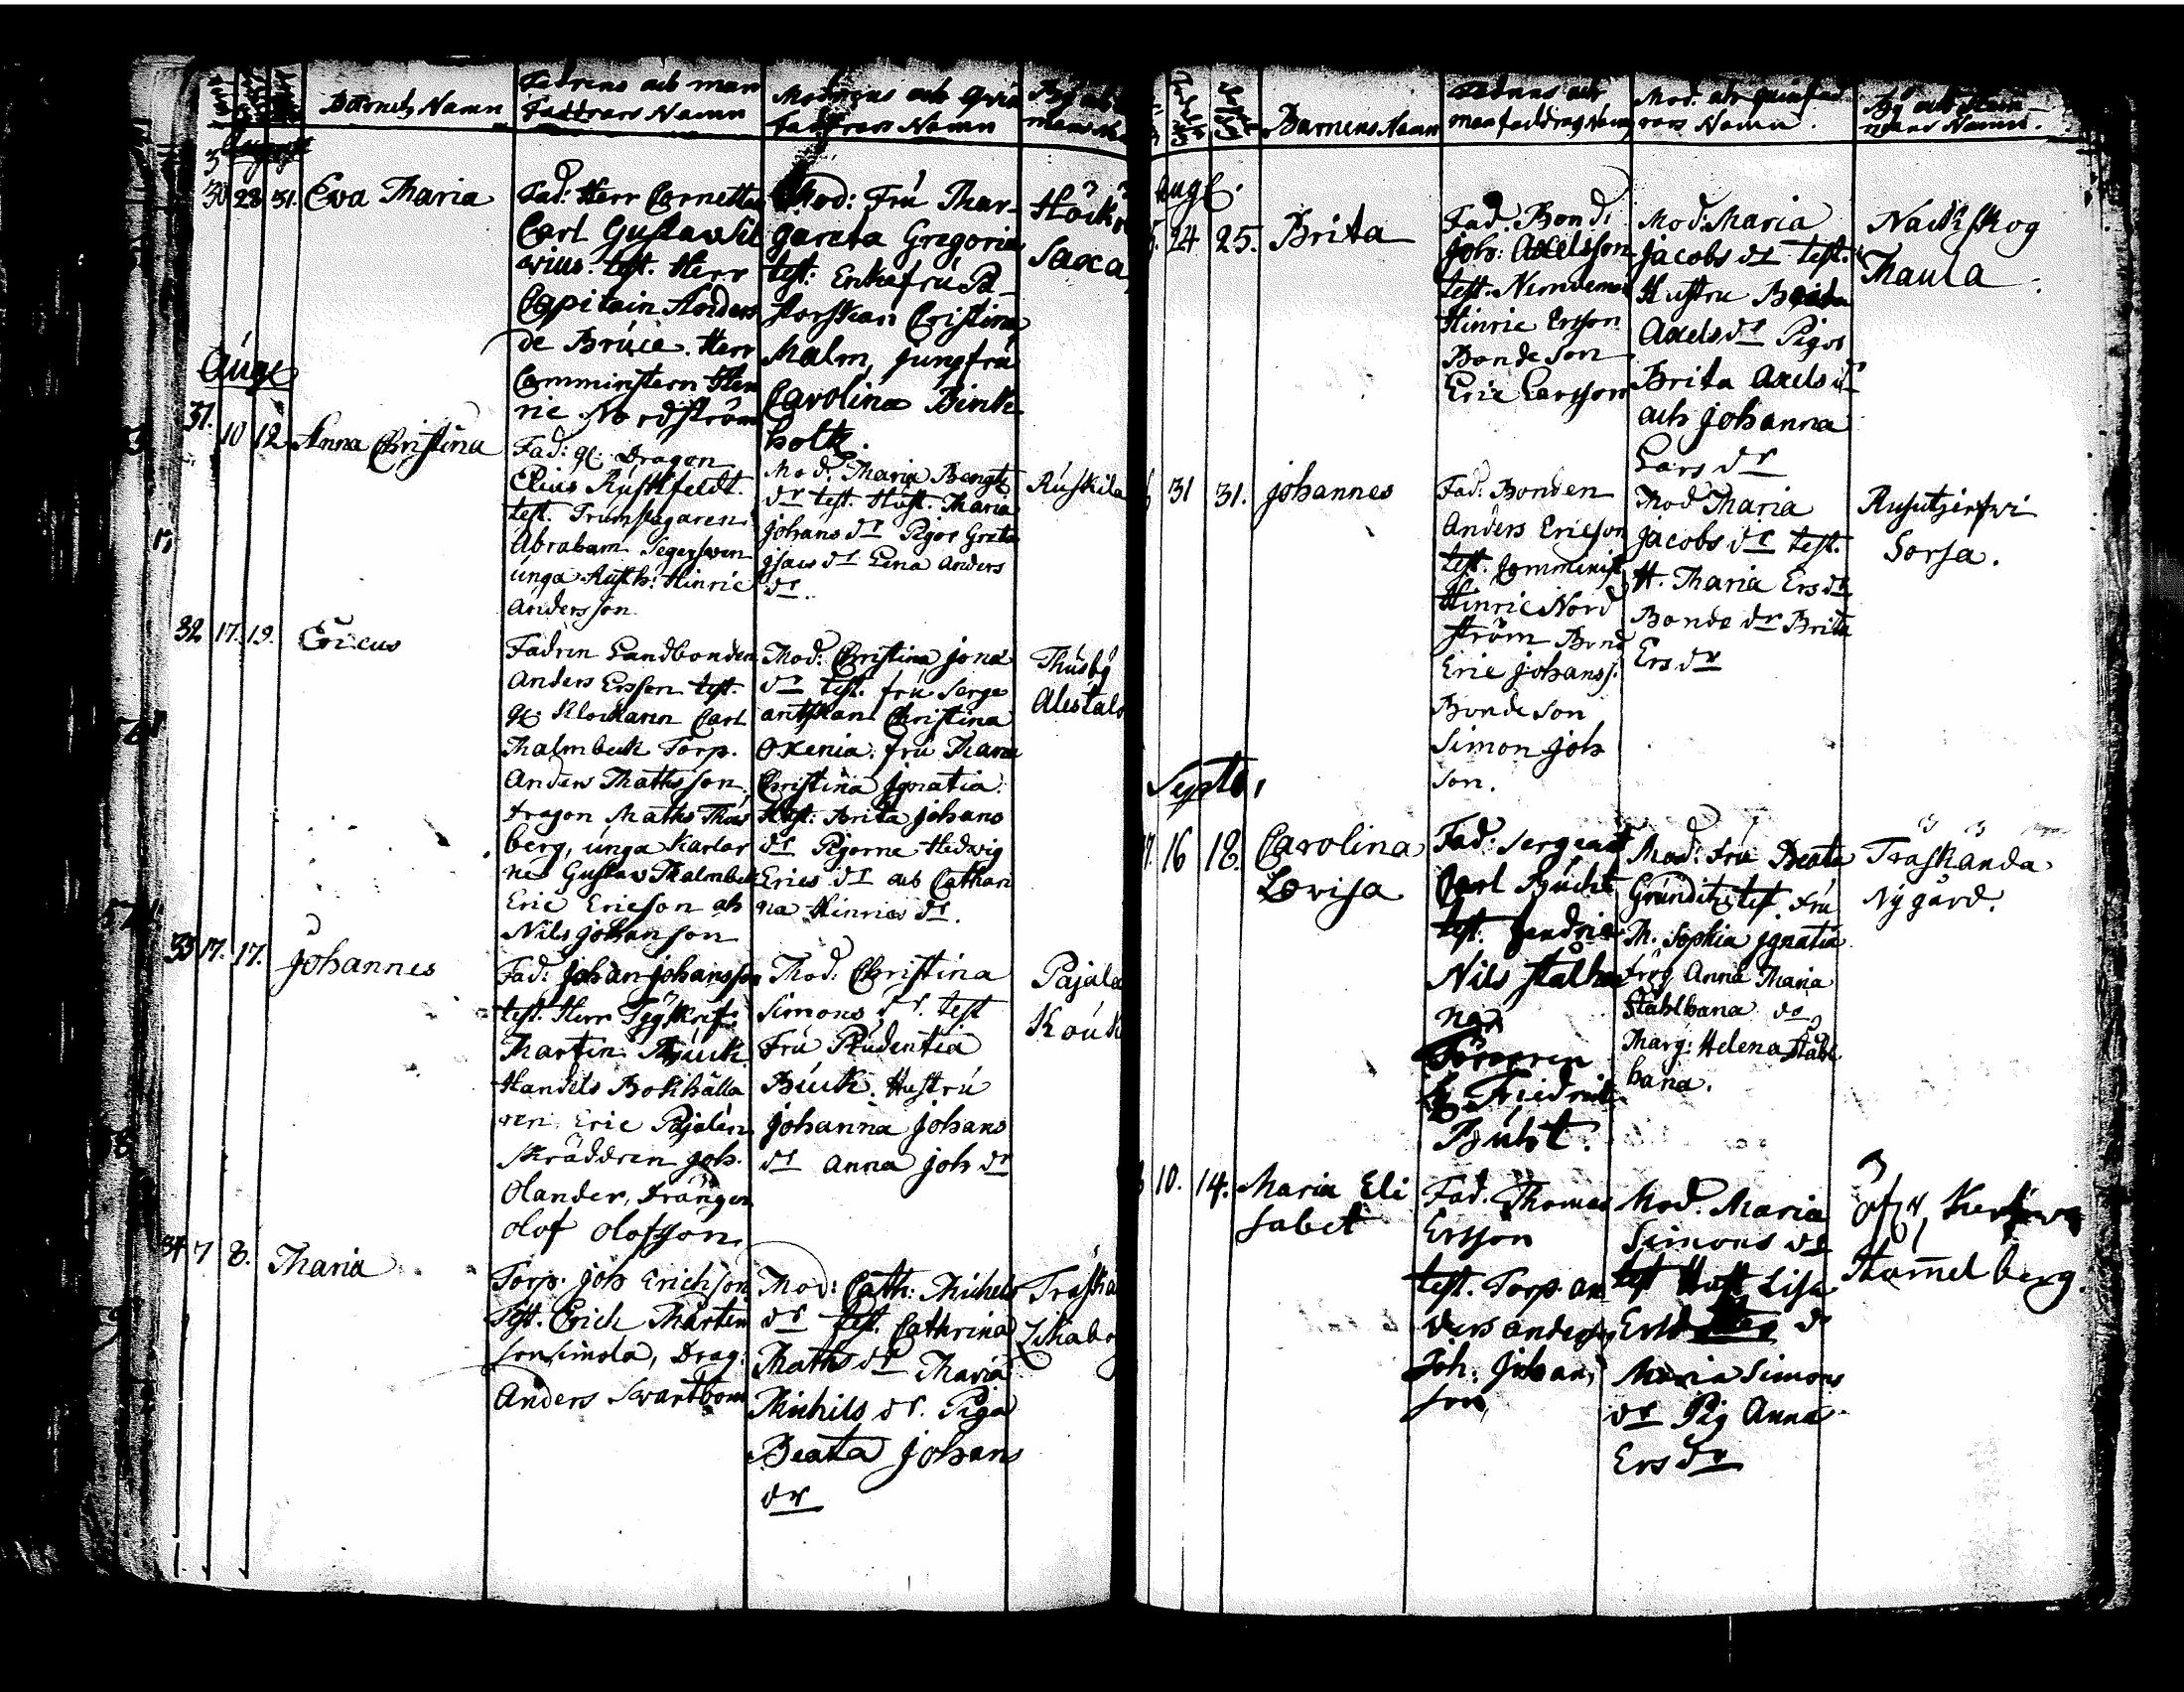 Barnets Namn
Fadrens och man
faddrars Namn
Modrens och Qvin
faddrars Namn
30 28 31. Eva Maria
Fad: Herr Cornetten
Carl Gustav Sil
vius. test. Herr
Capitain Anders
de Bruce. Herr
Comministern Hen
ric Nordström
Mod: Fru Mar-
gareta Gregoria
test: Enkefru Pa-
storskan Cristina
Malm, jungfru
Carolina Binke
holtz.
Saxa
Aug.
31. 10 12 Anna Christina
Fad: gl. Dragon
Elias Rústfeldt.
test. Trumslagaren
Abraham Segersven
unga Rusth: Hinric
Andersson
Mod: Maria Bengts
dr test. Hust. Maria
Johans dr Pigor Greta
Isacs dr Lena Anders
dr.
Rúskila
32 17. 19. Ericus
Fadren Landbonden
Anders Ersson test.
gl. Klockaren Carl
Malmbeck Torp.
Anders Mathsson,
Dragon Maths
berg, unga Karlar
ne Gustav Malmbeck
Eric Ericson och
Nils Johanson
Mod: Christina Jona
dr test. fru Serge
antskan Christina
Oxenia. fru Maria
Christina Ignatia.
Hust: Brita Johans
dr Pigorne Hedwig
Erics dr och Cathari
na Hinrics dr.
Músby
Alistalo
33 17. 17. Johannes
Fad: Johan Johansson
test. Herr
Martin Búck
Handels Bokhålla
ren Eric Pajalén
Skräddren Joh.
Olander, Drängen
Olof Olofsson
Mod: Christina
Simons dr. test
Frú Prúdentia
Búck. Hustrú
Johanna Johans
dr Anna Joh dr
Pajala
34 7 8. Maria
Torp. Joh Erichson
Test. Erich Mårten
son Simola, Drag:
Anders Swartbom
Mod: Cath: Michels
dr test. Cathrina
Maths dr Maria
Michils dr. Piga
Beata Johans
dr
Barnens Namn
Fadrens och
Mod. och
rars Namn.
By och Hem
mans Namn.
Aug.
24 25. Brita
Fad. Bond.
Joh: Axelsson
test. Nemdeman
Hinric Ersson
Bondeson
Eric Larsson
Mod: Maria
Jacobs dr test.
Hustru Brita
Axels dr Pigor
Brita Axels dr
och Johanna
Lars dr
Nackskog
Maula.
31 31. Johannes
Fad: Bonden
Anders Ericson
test. Comminist
Hinric Nord
ström Bond
Eric Johanss.
Bondeson
Simon Joh
son.
Mod Maria
Jacobs dr test.
H. Maria Ers dr
Bonde dr Brita
Ers dr
Sorsa.
Septb.
16 18. Carolina
Lovisa
Fad: Sergeant
Carl Búcht
test.
Nils Stålha
na
Friedrich
Búht.
Mod: Frú Beata
test. Frú
M. Sophia Ignatia
Frög Anna Maria
Stahlhana do
Marg: Helena Stahl
hana.
Traskända
Nygård.
10. 14. Maria Eli
sabet
Fad. Thomas
Ersson
test. Torp. An
ders Anders
Joh: Johans
son
Mod. Maria
Simons dr
test Hust Lisa
dr
Maria Simons
dr Pig Anna
Ers dr
Hamelberg.